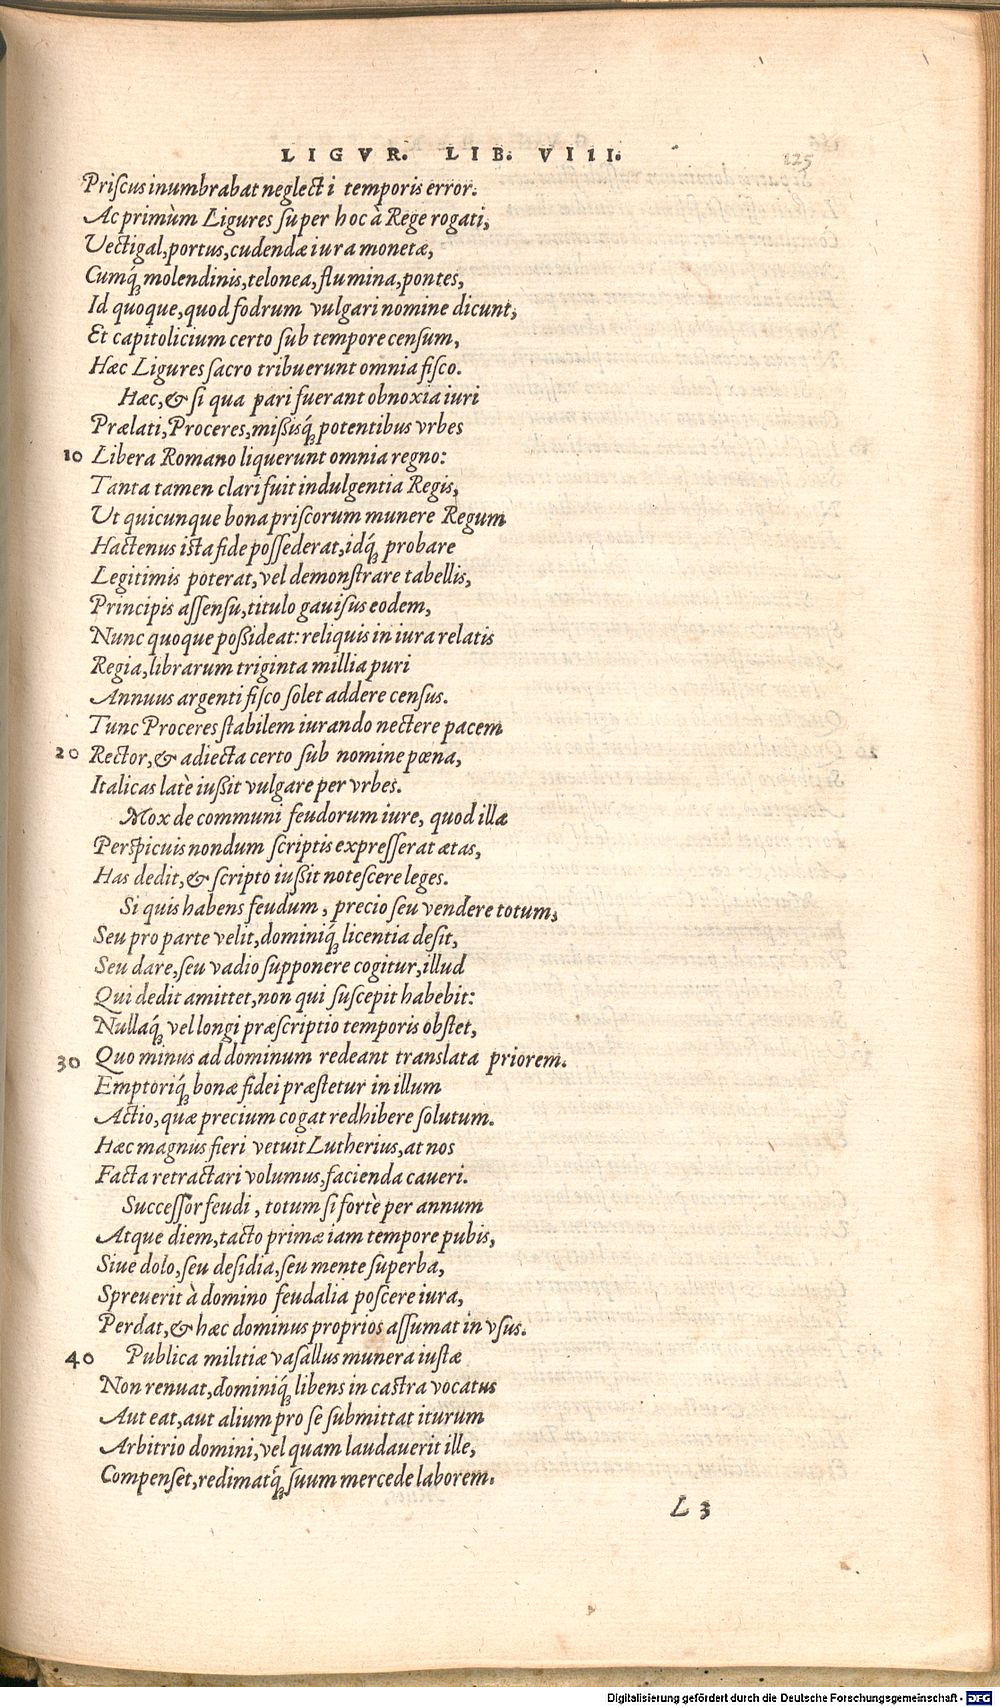 LIGVR. LIB. VIII. 125
Priſcus inumbrabat neglecti temporis error.
Ac primùm Ligures ſuper hoc à Rege rogati,
Vectigal, portus, cudendæ iura monetæ,
Cumq́ꝫ molendinis, telonea, flumina, pontes,
Id quoque, quod fodrum vulgari nomine dicunt,
Et capitolicium certo ſub tempore cenſum,
Hæc Ligures ſacro tribuerunt omnia fiſco.
Hæc, & ſi qua pari fuerant obnoxia iuri
Prælati, Proceres, mißisq́ꝫ potentibus vrbes
10 Libera Romano liquerunt omnia regno:
Tanta tamen clari fuit indulgentia Regis,
Ut quicunque bona priſcorum munere Regum
Hactenus iſta fide poſſederat, idq́ꝫ probare
Legitimis poterat, vel demonſtrare tabellis,
Principis aſſenſu, titulo gauiſus eodem,
Nunc quoque poßideat: reliquis in iura relatis
Regia, librarum triginta millia puri
Annuus argenti fiſco ſolet addere cenſus.
Tunc Proceres ſtabilem iurando nectere pacem
20 Rector, & adiecta certo ſub nomine pœna,
Italicas latè iußit vulgare per vrbes.
Mox de communi feudorum iure, quod illæ
Perſpicuis nondum ſcriptis expreſſerat ætas,
Has dedit, & ſcripto iußit noteſcere leges.
Si quis habens feudum, precio ſeu vendere totum,
Seu pro parte velit, dominiq́ꝫ licentia deſit,
Seu dare, ſeu vadio ſupponere cogitur, illud
Qui dedit amittet, non qui ſuſcepit habebit:
Nullaq́ꝫ vel longi præſcriptio temporis obſtet,
30 Quo minus ad dominum redeant translata priorem.
Emptoriq́ꝫ bonæ fidei præſtetur in illum
Actio, quæ precium cogat redhibere ſolutum.
Hæc magnus fieri vetuit Lutherius, at nos
Facta retractari volumus, facienda caueri.
Succeſſor feudi, totum ſi fortè per annum
Atque diem, tacto primæ iam tempore pubis,
Siue dolo, ſeu deſidia, ſeu mente ſuperba,
Spreuerit à domino feudalia poſcere iura,
Perdat, & hæc dominus proprios aſſumat in vſus.
40 Publica militiæ vaſallus munera iuſtæ
Non renuat, dominiq́ꝫ libens in caſtra vocatus
Aut eat, aut alium pro ſe ſubmittat iturum
Arbitrio domini, vel quam laudauerit ille,
Compenſet, redimatq́ꝫ ſuum mercede laborem.
L 3
Digitalisierung gefördert durch die Deutsche Forschungsgemeinschaft - DFG